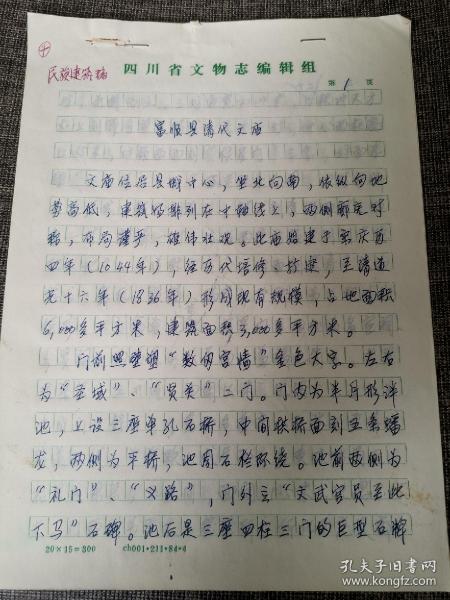 民族建筑稿
四川省文物志编辑组
第 1 页
富顺县清代文庙
文庙位居县城中心，坐北向南，依纵向地
势高低，建筑物排列在中轴线上，两侧廊庑对
称，布局谨严，雄伟壮观。此庙始建于宋庆历
四年（1044年），经历代培修、扩建，至清道
光十六年（1836年）形成现有规模，占地面积
6,000多平方米，建筑面积3,000多平方米。
门前照壁塑“数仞宫墙”金色大字。左右
为“圣域”、“贤关”二门。门内为半月形泮
池，上设三座单孔石桥，中间拱桥面刻五条蟠
龙，两侧为平桥，池周石栏环绕。池前两侧为
“礼门”、“义路”，门外立“文武官员至此
下马”石碑。池后是三座四柱三门的巨型石牌
20×15=300
ch001·211·84·4
孔夫子旧书网
www.kongfz.com